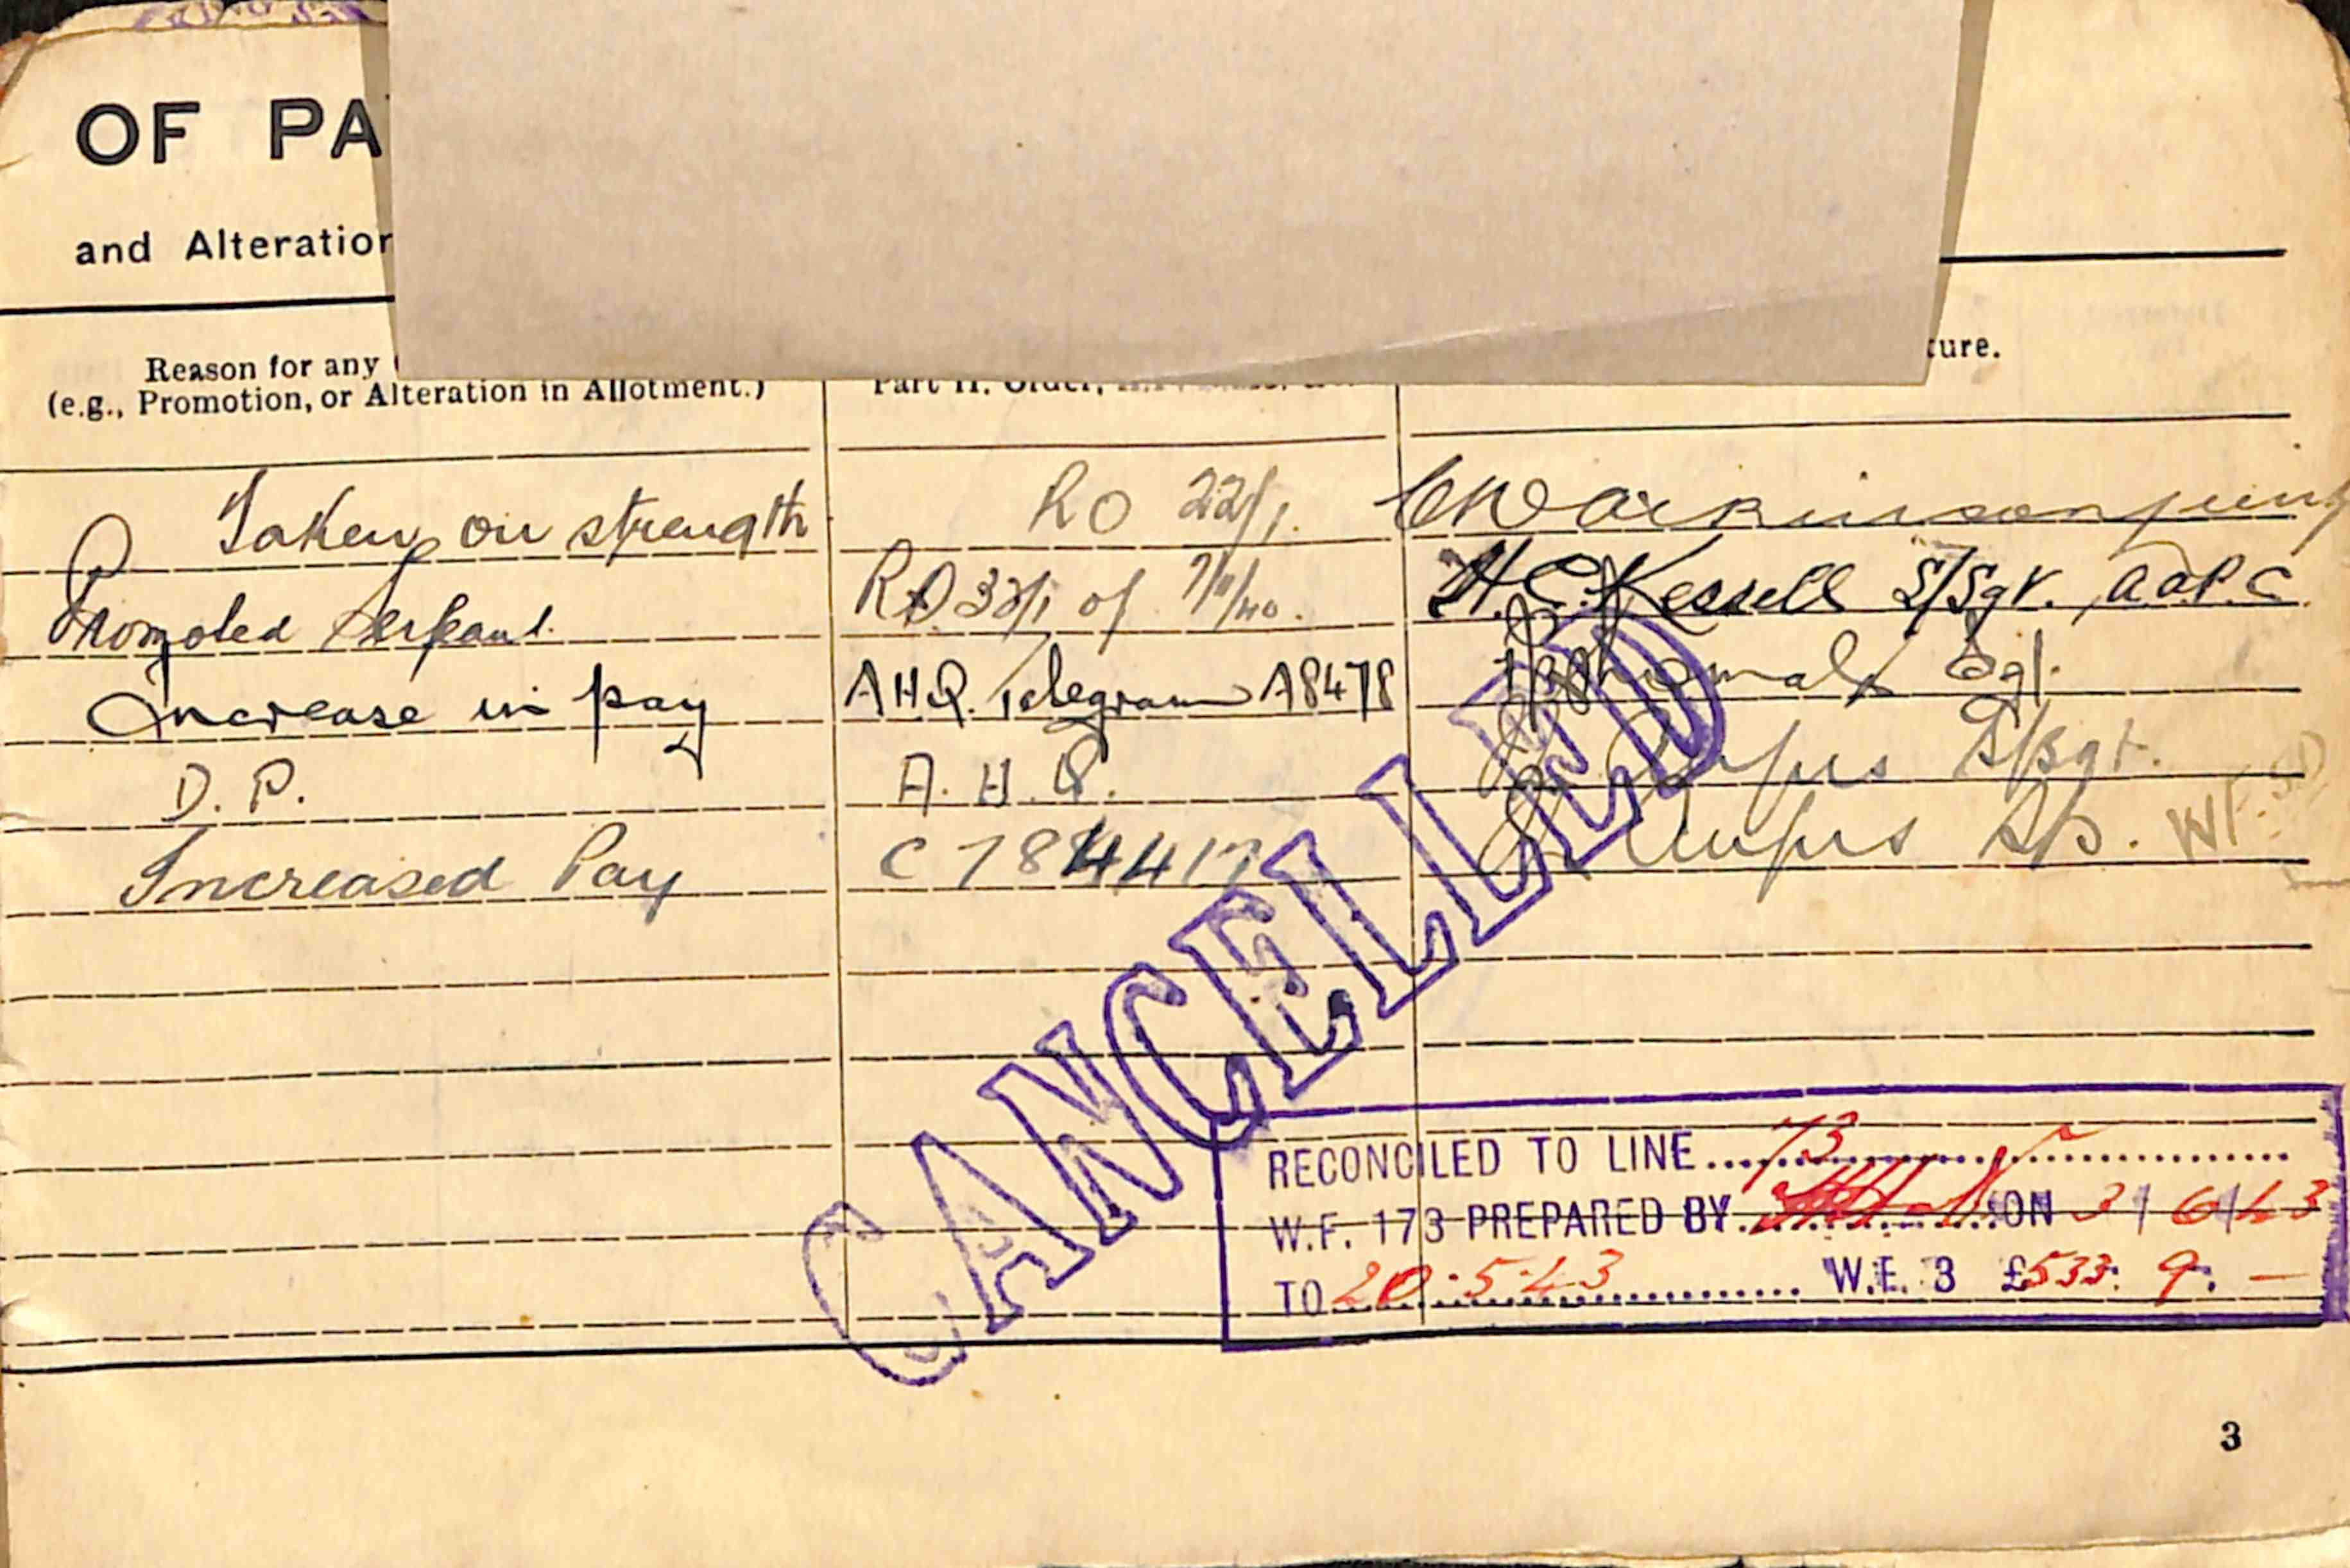 OF PA
and Alteration
Reason for any
(e.g., Promotion, or Alteration in Allotment.)
Part II. Order,
ture.
Taken on strength RO 22/1.
Promoted Serjeant. RO 33/1 of 7/11/40. H.C. Kessell S/Sgt. AAPC
Increase in pay AHQ. Telegram A8478 Sgt.
D. P. A. H. Q. S/Sgt.
Increased Pay C784417 S/S. WF.
CANCELLED
RECONCILED TO LINE 73
W.F. 173 PREPARED BY ON 3/6/43
TO 20.5.43 W.E. 3 £533. 9. —
3